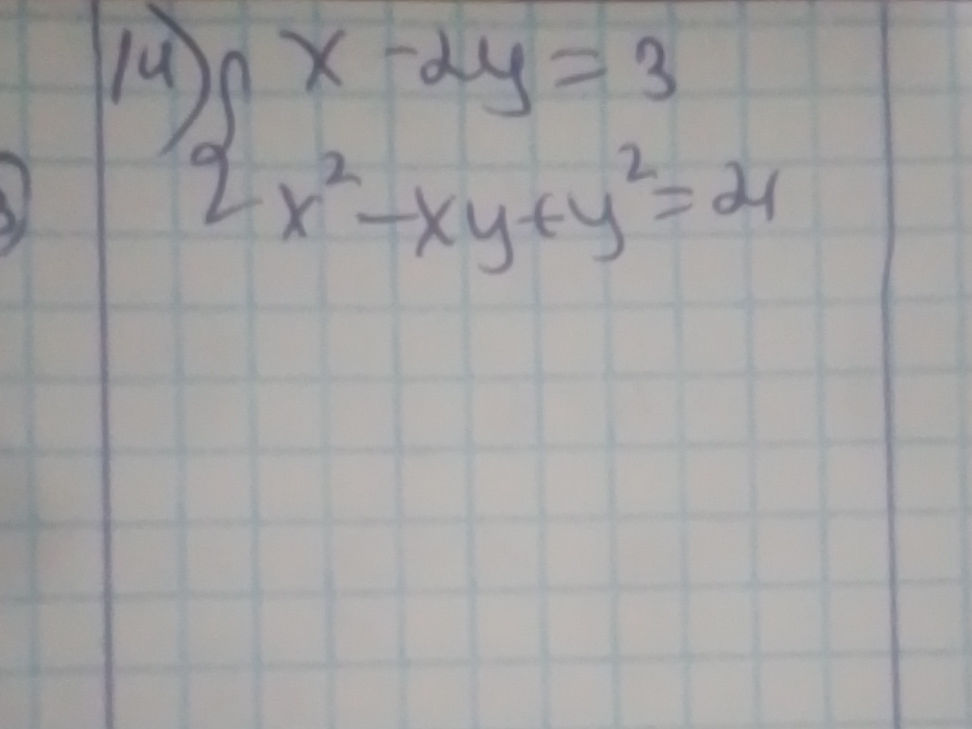 14) { x - 2y = 3
x² - xy + y² = 21